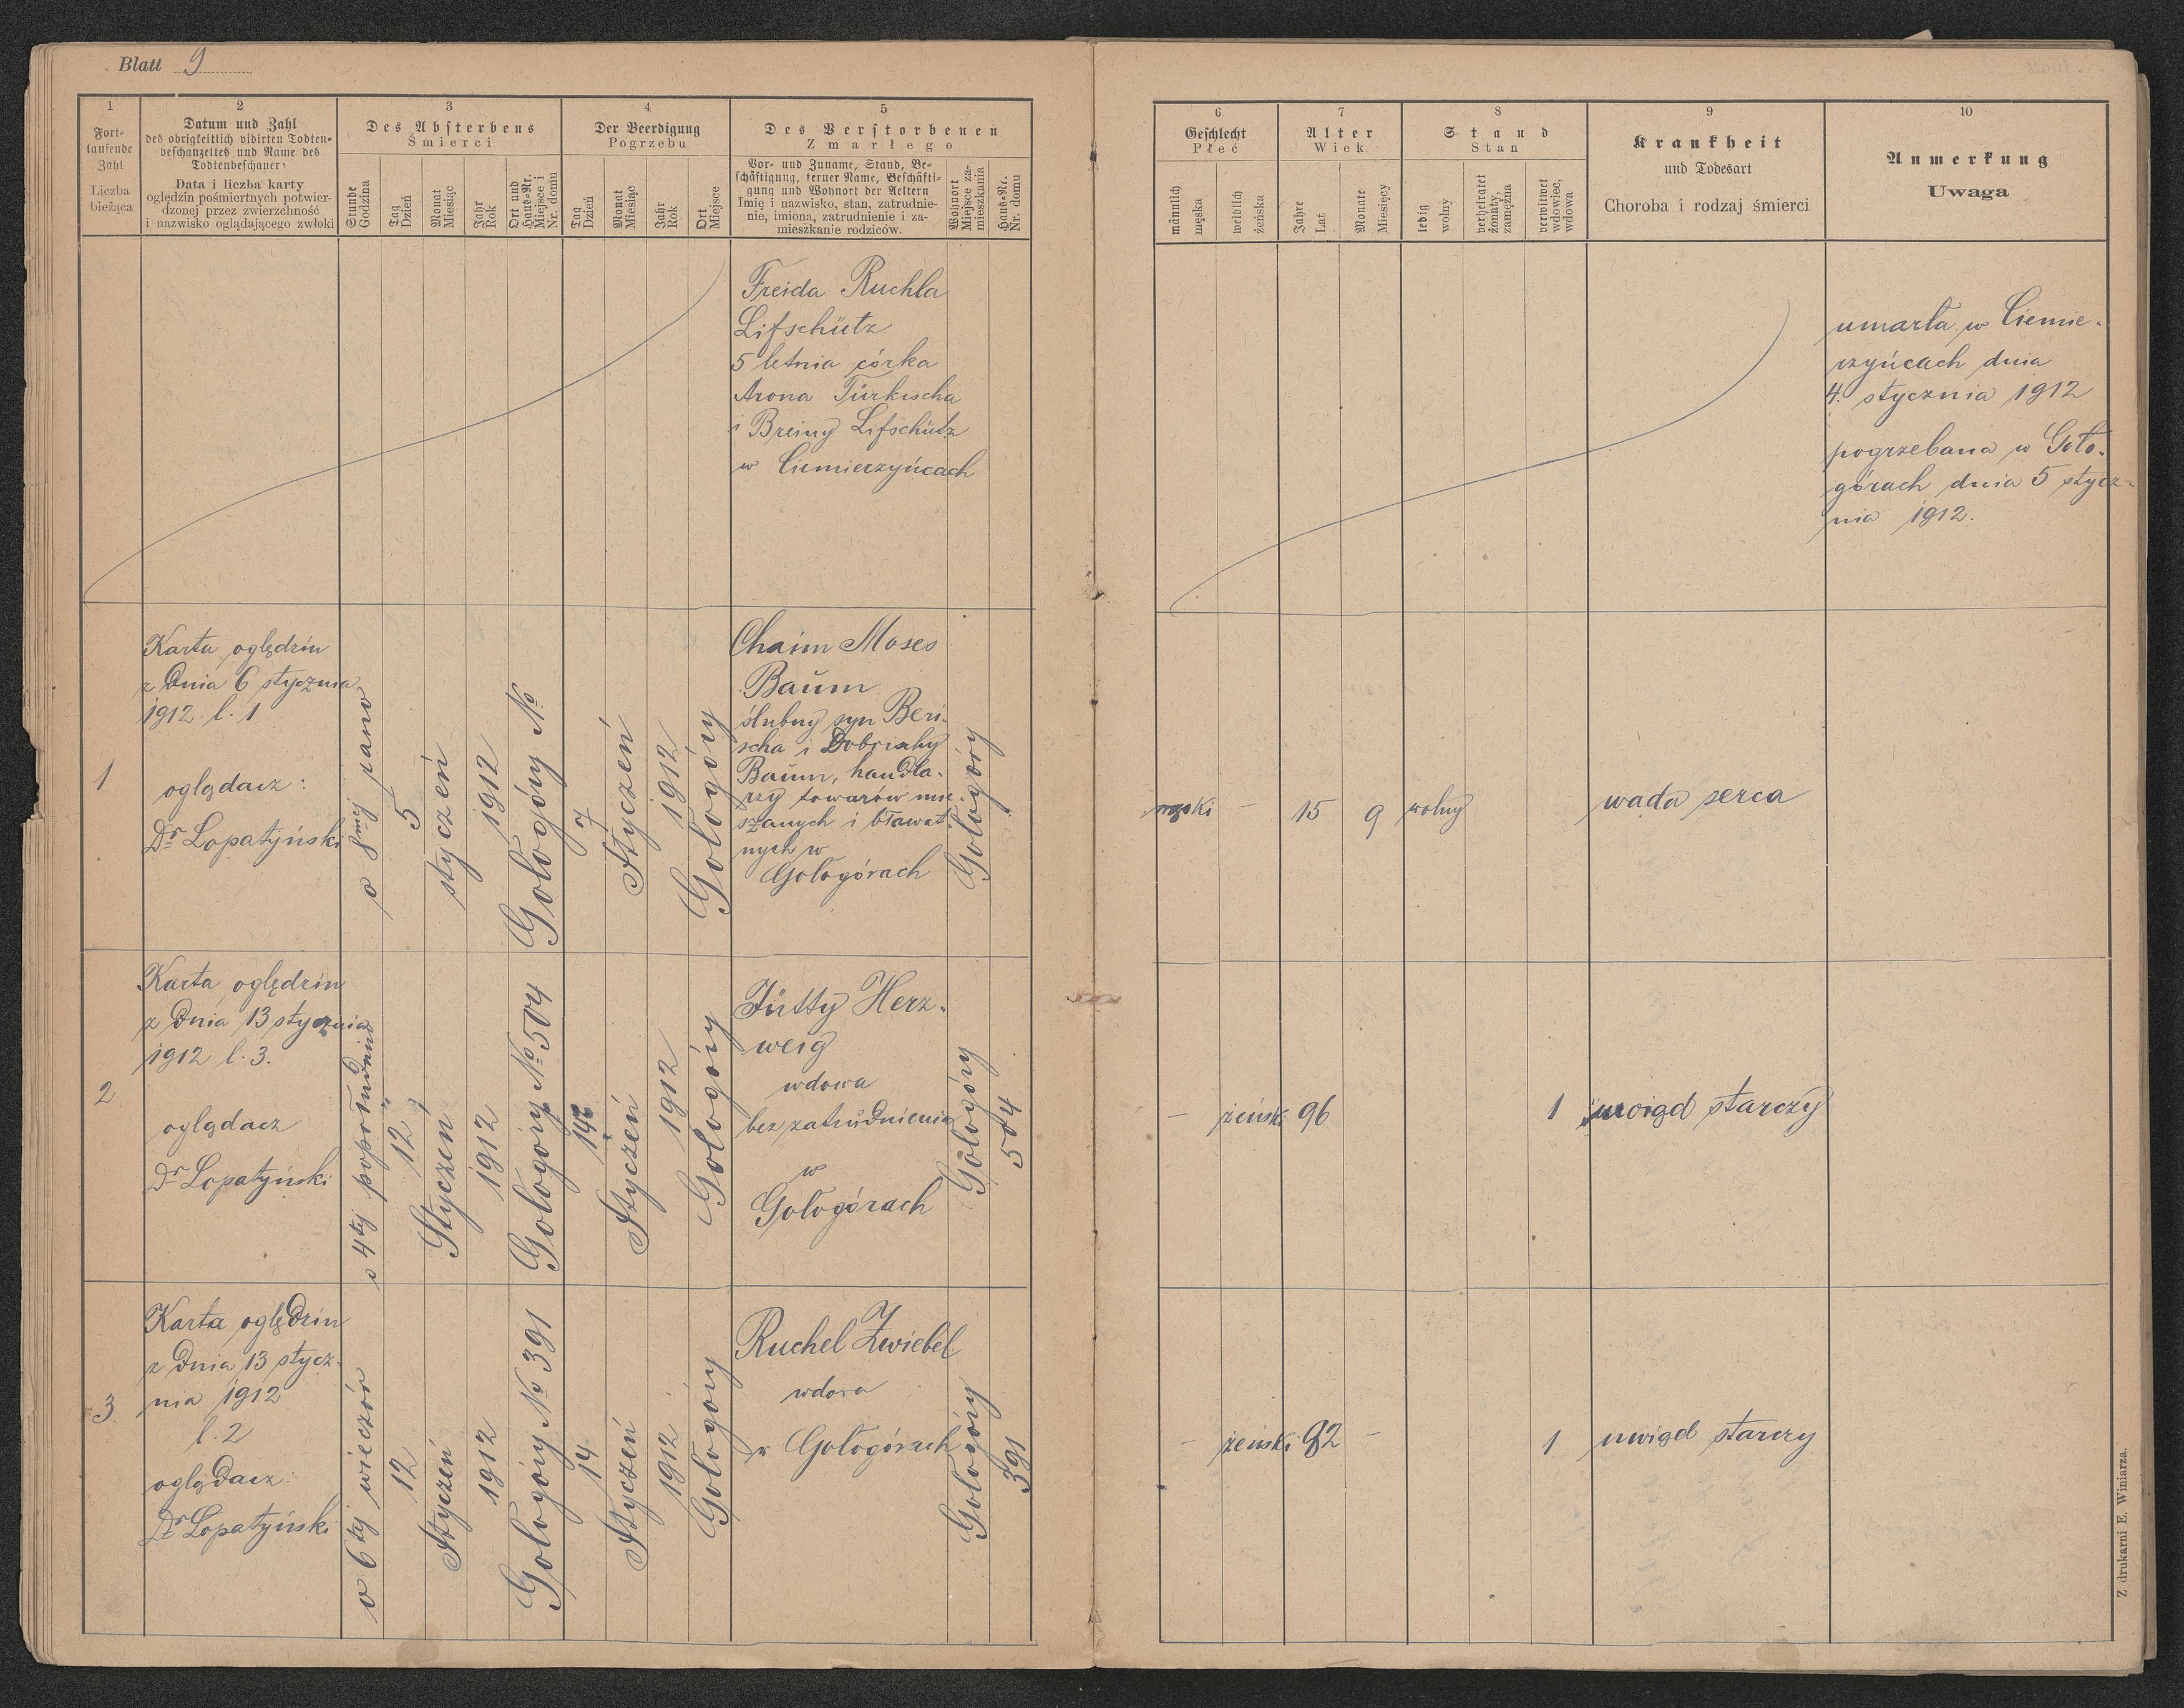 Blatt 9
1
Fort-
laufende
Zahl
Liczba
bieżąca
2
Datum und Zahl
des obrigkeitlich vidirten Todten-
beschauzettels und Name des
Todtenbeschauers
Data i liczba karty
oględzin pośmiertnych potwier-
dzonej przez zwierzchność
i nazwisko oglądającego zwłoki
3
Des Absterbens
Śmierci
Stunde
Godzina
Tag
Dzień
Monat
Miesiąc
Jahr
Rok
Ort und
Haus-Nr.
Miejsce i
Nr. domu
4
Der Beerdigung
Pogrzebu
Tag
Dzień
Monat
Miesiąc
Jahr
Rok
Ort
Miejsce
5
Des Verstorbenen
Zmarłego
Vor- und Zuname, Stand, Be-
schäftigung, ferner Name, Beschäfti-
gung und Wohnort der Aeltern
Imię i nazwisko, stan, zatrudnie-
nie, imiona, zatrudnienie i za-
mieszkanie rodziców.
Wohnort
Miejsce za-
mieszkania
Haus-Nr.
Nr. domu
6
Geschlecht
Płeć
männlich
męska
weiblich
żeńska
7
Alter
Wiek
Jahre
Lat
Monate
Miesięcy
8
Stand
Stan
ledig
wolny
verheiratet
żonaty,
zamężna
verwitwet
wdowiec,
wdowa
9
Krankheit
und Todesart
Choroba i rodzaj śmierci
10
Anmerkung
Uwaga
Freida Ruchla
Lifschütz
5 letnia córka
Arona Türkischa
i Breiny Lifschütz
w Ciemierzyńcach
umarła w Ciemie-
rzyńcach dnia
4. stycznia 1912
pogrzebana w Goło-
górach dnia 5 stycz-
nia 1912.
1
Karta oględzin
z dnia 6 stycznia
1912 l. 1
oglądacz:
Dr Łopatyński
o 8mej rano
5
styczeń
1912
Gołogóry No
7
Styczeń
1912
Gołogóry
Chaim Moses
Baum
ślubny syn Beri-
scha i Dobrischy
Baum, handla-
rzy towarów mie-
szanych i bławat-
nych w
Gołogórach
Gołogóry
męski
-
15
9
wolny
wada serca
2
Karta oględzin
z dnia 13 stycznia
1912 l. 3.
oglądacz
Dr Łopatyński
o 4tej popołudniu
12
Styczeń
1912
Gołogóry No 504
14
Styczeń
1912
Gołogóry
Jütty Herz-
weig
wdowa
bez zatrudnienia
w
Gołogórach
Gołogóry
504
-
żeński
96
1
uwiąd starczy
3
Karta oględzin
z dnia 13 stycz-
nia 1912
l. 2
oglądacz:
Dr Łopatyński
o 6tej wieczór
12
Styczeń
1912
Gołogóry No 391
14
Styczeń
1912
Gołogóry
Ruchel Zwiebel
wdowa
w Gołogórach
Gołogóry
391
-
żeński
82
-
1
uwiąd starczy
Z drukarni E. Winiarza.